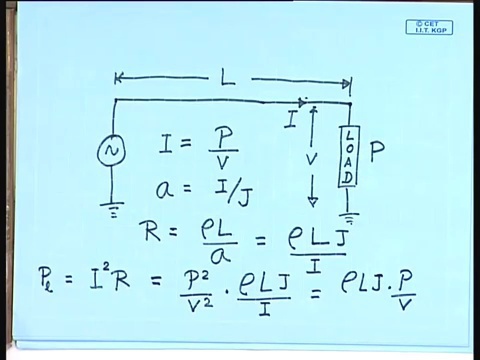 © CET
I.I.T. KGP
L
I
I = P/V
V
LOAD
P
a = I/J
R = ρL/a = ρLJ/I
Pₗ = I²R = P²/V² · ρLJ/I = ρLJ · P/V